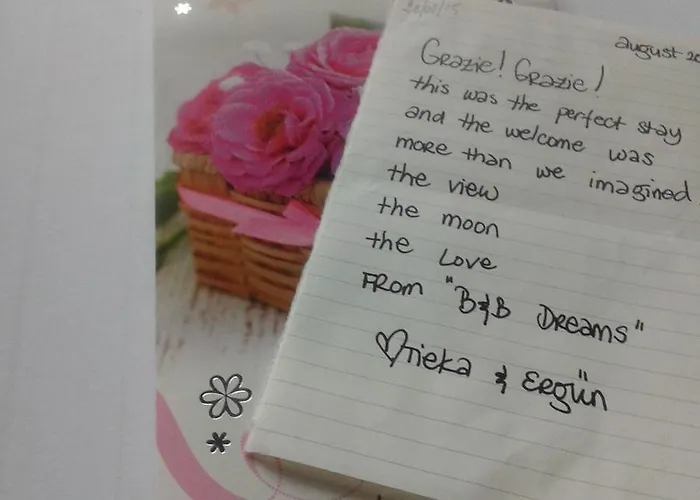 august 20
Grazie! Grazie!
this was the perfect stay
and the welcome was
more than we imagined
the view
the moon
the Love
From "B&B Dreams"
♡rieka & Ergün